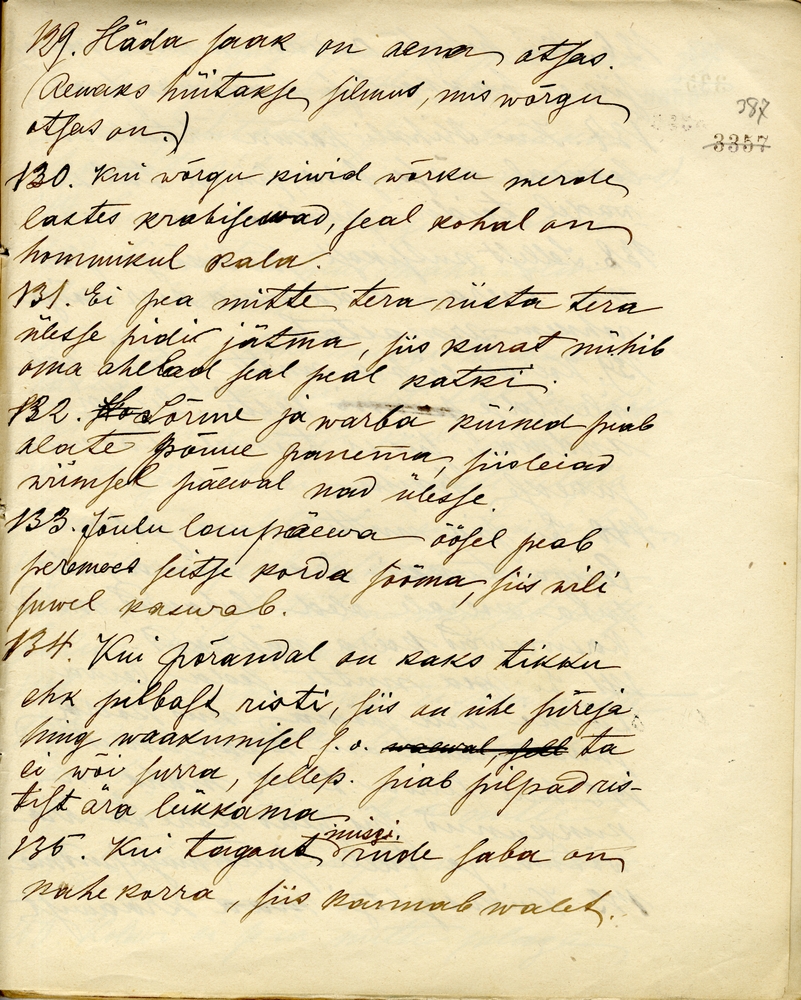 129. Häda saak on aewa otsas.
(Aewaks hüitakse silmus, mis wõrgu
otsas on.)
387
3357
130. Kui wõrgu kiwid wõrku merde
lastes krabisewad, seal kohal on
hommikul kala.
131. Ei pea mitte tera riista tera
ülesse pidi jätma, siis kurat nühib
oma ahelad seal peal katki.
132. Sõrme ja warba küined piab
alate põuue panema, siis leiad
wiimsel päewal nad ülesse.
133. Jõulu laupäewa öösel peab
peremees seitse korda sööma, siis wili
suwel kaswab.
134. Kui põrandal on kaks tikku
ehk pilbast risti, siis on ühe süreja
hing waakumisel s. o. waewal, sell ta
ei wõi surra, sellep. piab pilpad ris-
tist ära lükkama
missi.
135. Kui tagant riide saba on
kahe korra, siis kannab walet.